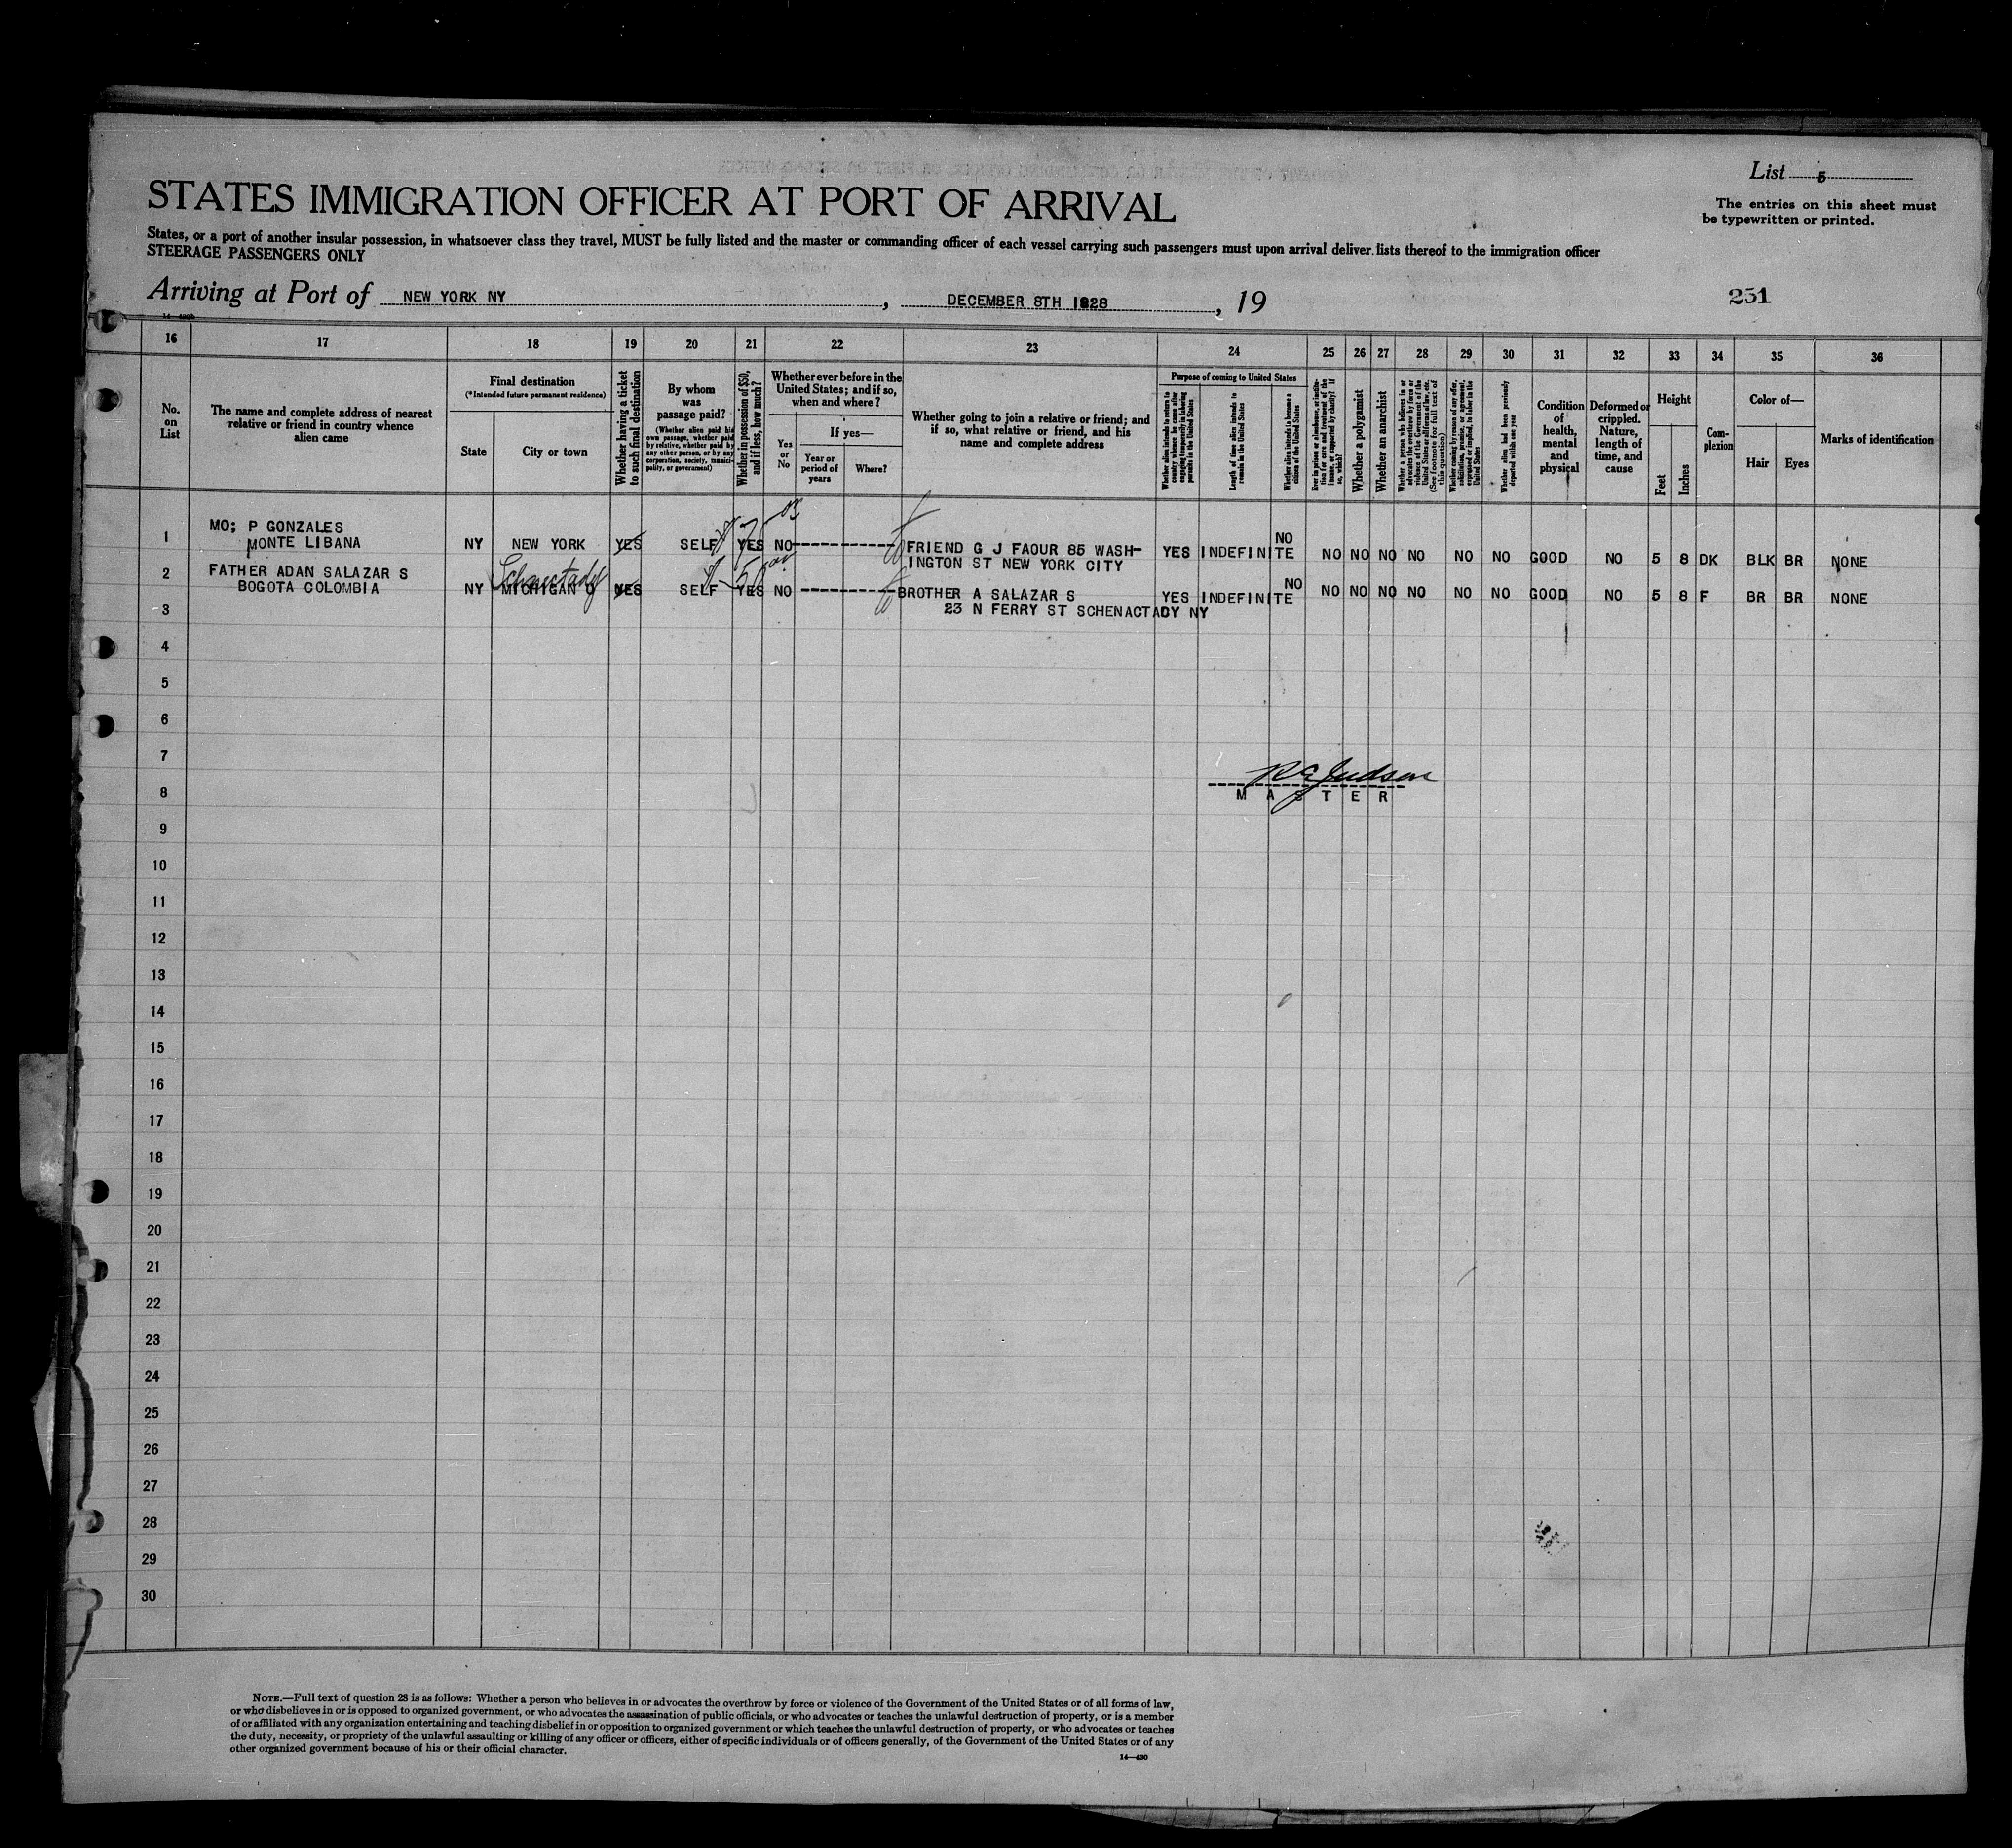 List 5
STATES IMMIGRATION OFFICER AT PORT OF ARRIVAL
The entries on this sheet must
be typewritten or printed.
States, or a port of another insular possession, in whatsoever class they travel, MUST be fully listed and the master or commanding officer of each vessel carrying such passengers must upon arrival deliver lists thereof to the immigration officer
STEERAGE PASSENGERS ONLY
Arriving at Port of NEW YORK NY, DECEMBER 8TH 1928, 19
251
16 17 18 19 20 21 22 23 24 25 26 27 28 29 30 31 32 33 34 35 36
No.
on
List
The name and complete address of nearest
relative or friend in country whence
alien came
Final destination
(*Intended future permanent residence)
State
City or town
Whether having a ticket
to such final destination
By whom
was
passage paid?
(Whether alien paid his
own passage, whether paid
by relative, whether paid by
any other person, or by any
corporation, society, munici-
pality, or government)
Whether in possession of $50,
and if less, how much?
Whether ever before in the
United States; and if so,
when and where?
Yes
or
No
If yes—
Year or
period of
years
Where?
Whether going to join a relative or friend; and
if so, what relative or friend, and his
name and complete address
Purpose of coming to United States
Whether alien intends to return to
country whence he came after
engaging temporarily in laboring
pursuits in the United States
Length of time alien intends to
remain in the United States
Whether alien intends to become a
citizen of the United States
Whether a polygamist
Whether an anarchist
Whether a person who believes in or
advocates the overthrow by force or
violence of the Government of the
United States or all forms of law, etc.
(See footnote for full text of
this question)
Whether coming by reason of any offer,
solicitation, promise, or agreement,
expressed or implied, to labor in the
United States
Whether alien had been previously
deported within one year
Condition
of
health,
mental
and
physical
Deformed or
crippled.
Nature,
length of
time, and
cause
Height
Feet
Inches
Com-
plexion
Color of—
Hair
Eyes
Marks of identification
1 MO; P GONZALES
MONTE LIBANA NY NEW YORK YES SELF YES NO FRIEND G J FAOUR 85 WASH-
INGTON ST NEW YORK CITY YES INDEFINITE NO NO NO NO NO NO NO GOOD NO 5 8 DK BLK BR NONE
2 FATHER ADAN SALAZAR S
BOGOTA COLOMBIA NY MICHIGAN U Schenectady YES SELF $50 YES NO BROTHER A SALAZAR S
23 N FERRY ST SCHENACTADY NY YES INDEFINITE NO NO NO NO NO NO NO GOOD NO 5 8 F BR BR NONE
3
4
5
6
7
R G Judson
MASTER
8
9
10
11
12
13
14
15
16
17
18
19
20
21
22
23
24
25
26
27
28
29
30
NOTE.—Full text of question 28 is as follows: Whether a person who believes in or advocates the overthrow by force or violence of the Government of the United States or of all forms of law,
or who disbelieves in or is opposed to organized government, or who advocates the assassination of public officials, or who advocates or teaches the unlawful destruction of property, or is a member
of or affiliated with any organization entertaining and teaching disbelief in or opposition to organized government or which teaches the unlawful destruction of property, or who advocates or teaches
the duty, necessity, or propriety of the unlawful assaulting or killing of any officer or officers, either of specific individuals or of officers generally, of the Government of the United States or of any
other organized government because of his or their official character.
14—430